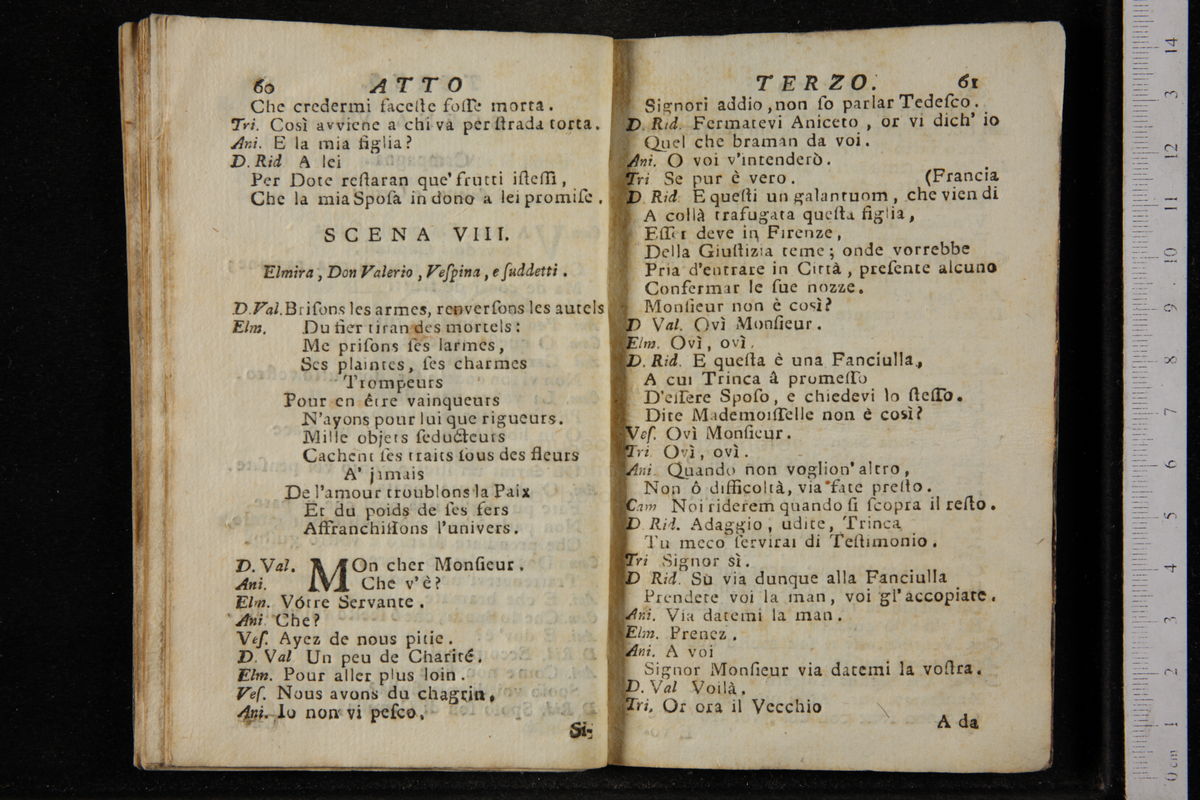 60 ATTO
Che credermi faceſte foſſe morta.
Tri. Così avviene a chi va per ſtrada torta.
Ani. E la mia figlia?
D. Rid A lei
Per Dote reſtaran que' frutti iſteſſi,
Che la mia Spoſa in dono a lei promiſe.
SCENA VIII.
Elmira, Don Valerio, Veſpina, e ſuddetti.
D.Val. Briſons les armes, renverſons les autels
Elm. Du fier tiran des mortels:
Me priſons ſes larmes,
Ses plaintes, ſes charmes
Trompeurs
Pour en être vainqueurs
N'ayons pour lui que rigueurs.
Mille objets ſeducteurs
Cachent ſes traits ſous des fleurs
A' jamais
De l'amour troublons la Paix
Et du poids de ſes fers
Affranchiſſons l'univers.
D. Val. MOn cher Monſieur.
Ani. Che v'è?
Elm. Vótre Servante.
Ani. Che?
Veſ. Ayez de nous pitie.
D. Val Un peu de Charité.
Elm. Pour aller plus loin.
Veſ. Nous avons du chagrin.
Ani. Io non vi peſco,
Si-
TERZO. 61
Signori addio, non ſo parlar Tedeſco.
D. Rid. Fermatevi Aniceto, or vi dich' io
Quel che braman da voi.
Ani. O voi v'intenderò.
Tri Se pur è vero. (Francia
D. Rid. E queſti un galantuom, che vien di
A collà trafugata queſta figlia,
Eſſer deve in Firenze,
Della Giuſtizia teme; onde vorrebbe
Pria d'entrare in Città, preſente alcuno
Confermar le ſue nozze.
Monſieur non è così?
D Val. Ovì Monſieur.
Elm. Ovì, ovì.
D. Rid. E queſta è una Fanciulla,
A cui Trinca â promeſſo
D'eſſere Spoſo, e chiedevi lo ſteſſo.
Dite Mademoiſſelle non è così?
Veſ. Ovì Monſieur.
Tri. Ovì, ovì.
Ani. Quando non voglion' altro,
Non ô difficoltà, via fate preſto.
Cam Noi riderem quando ſi ſcopra il reſto.
D. Rid. Adaggio, udite, Trinca
Tu meco ſervirai di Teſtimonio.
Tri Signor sì.
D Rid. Sù via dunque alla Fanciulla
Prendete voi la man, voi gl' accopiate.
Ani. Via datemi la man.
Elm. Prenez.
Ani. A voi
Signor Monſieur via datemi la voſtra.
D. Val Voilà.
Tri. Or ora il Vecchio
A da
0 cm 1 2 3 4 5 6 7 8 9 10 11 12 13 14